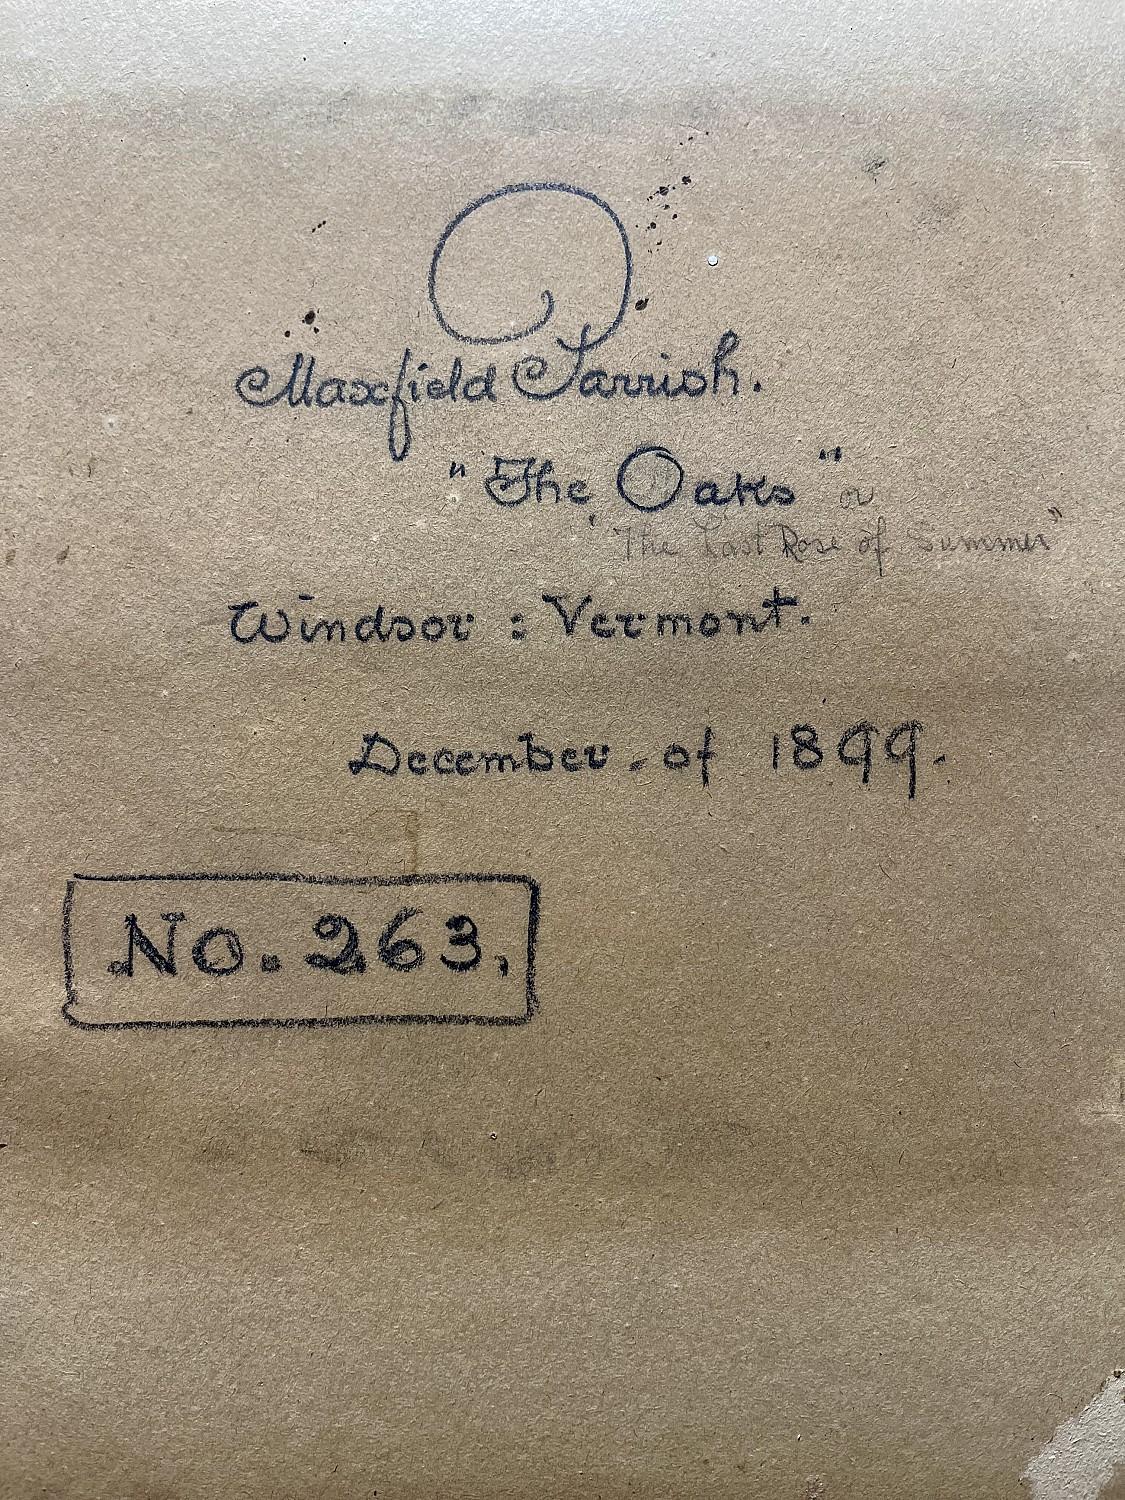 Maxfield Parrish.
"The Oaks" or
"The Last Rose of Summer"
Windsor : Vermont.
December - of 1899.
No. 263.